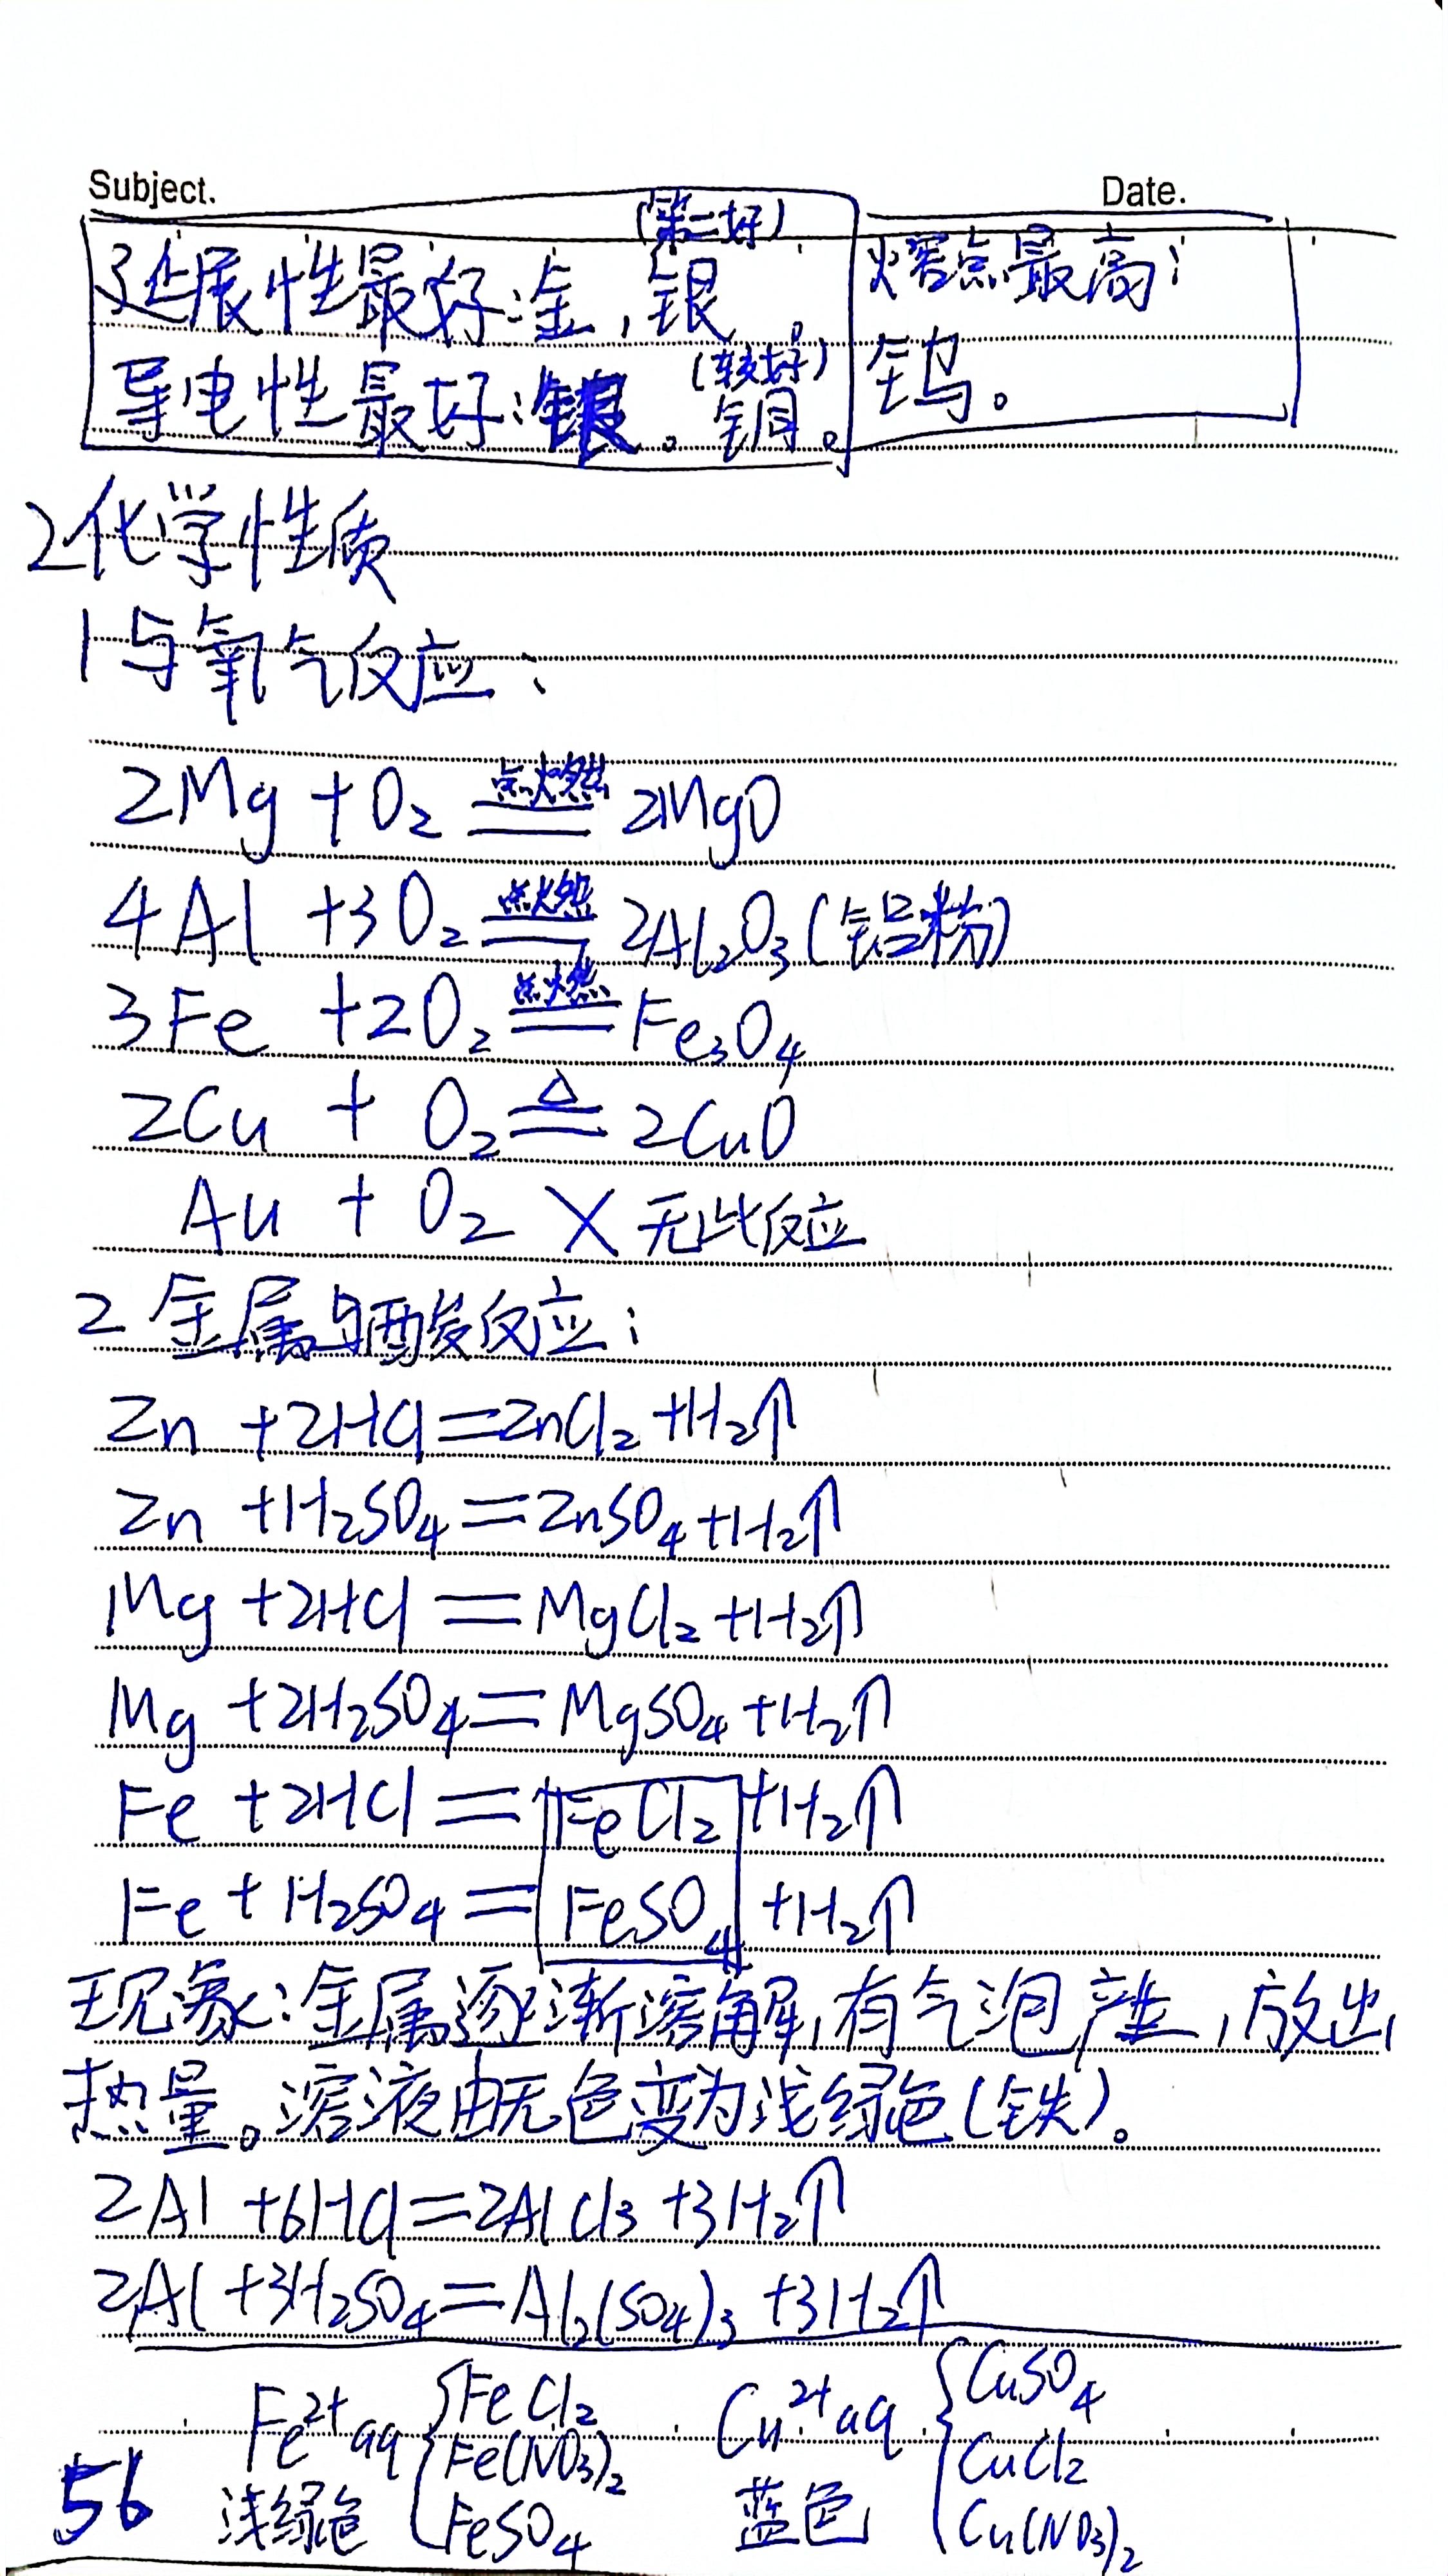 Subject.
Date.
(第二好)
延展性最好:金,银。
(较好)
导电性最好:银。铜。
熔点最高:
钨。
2化学性质
1与氧气反应:
2Mg + O₂ 点燃══ 2MgO
4Al +3O₂ 点燃══ 2Al₂O₃(铝粉)
3Fe +2O₂ 点燃══ Fe₃O₄
2Cu + O₂ △══ 2CuO
Au + O₂ × 无此反应
2 金属与酸反应:
Zn +2HCl=ZnCl₂+H₂↑
Zn +H₂SO₄=ZnSO₄+H₂↑
Mg +2HCl=MgCl₂+H₂↑
Mg +2H₂SO₄=MgSO₄+H₂↑
Fe +2HCl=FeCl₂+H₂↑
Fe+H₂SO₄=FeSO₄+H₂↑
现象:金属逐渐溶解,有气泡产生,放出
热量。溶液由无色变为浅绿色(铁)。
2Al +6HCl=2AlCl₃+3H₂↑
2Al+3H₂SO₄=Al₂(SO₄)₃+3H₂↑
Fe²⁺aq {FeCl₂
Fe(NO₃)₂
FeSO₄
浅绿色
Cu²⁺aq {CuSO₄
CuCl₂
Cu(NO₃)₂
蓝色
56